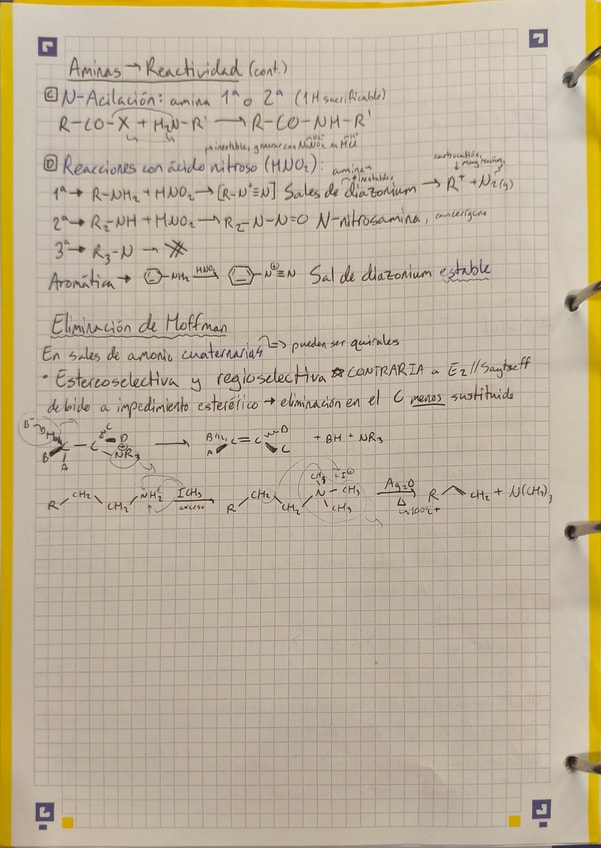 Aminas → Reactividad (cont.)
Ⓒ N-Acilación: amina 1ª o 2ª (1H sacrificable)
R-CO-X + H₂N-R' → R-CO-NH-R'
inestable, generar con NaNO₂ en HCl
Ⓓ Reacciones con ácido nitroso (HNO₂):
carbocatión,
1ª → R-NH₂ + HNO₂ → [R-N⁺≡N] Sales de diazonium → R⁺ + N₂(g)
2ª → R₂-NH + HNO₂ → R₂-N-N=O N-nitrosamina, cancerígeno
3ª → R₃-N →
Aromática → -NH₂ HNO₂ → -N⊕≡N Sal de diazonium estable
Eliminación de Hoffman
En sales de amonio cuaternarias => pueden ser quirales
• Estereoselectiva y regioselectiva ☆ CONTRARIA a E₂//Saytseff
debido a impedimento estérético → eliminación en el C menos sustituido
B⁻ H C - C C D → B A C = C D C + BH + NR₃
B A ⊕NR₃
R CH₂ CH₂ NH₂ ICH₃ exceso → R CH₂ CH₂ N CH₃ CH₃ CH₃ + I⊖ Ag₂O Δ 100℃+ → R CH₂ + N(CH₃)₃